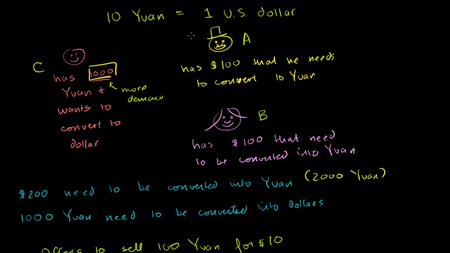 10 Yuan = 1 U.S. dollar
A
has $100 that he needs
to convert to Yuan
C
has 1000
Yuan +
wants to
convert to
dollar
more
demand
B
has $100 that need
to be converted into Yuan
$200 need to be converted into Yuan (2000 Yuan)
1000 Yuan need to be converted into dollars
Offers to sell 100 Yuan for $10